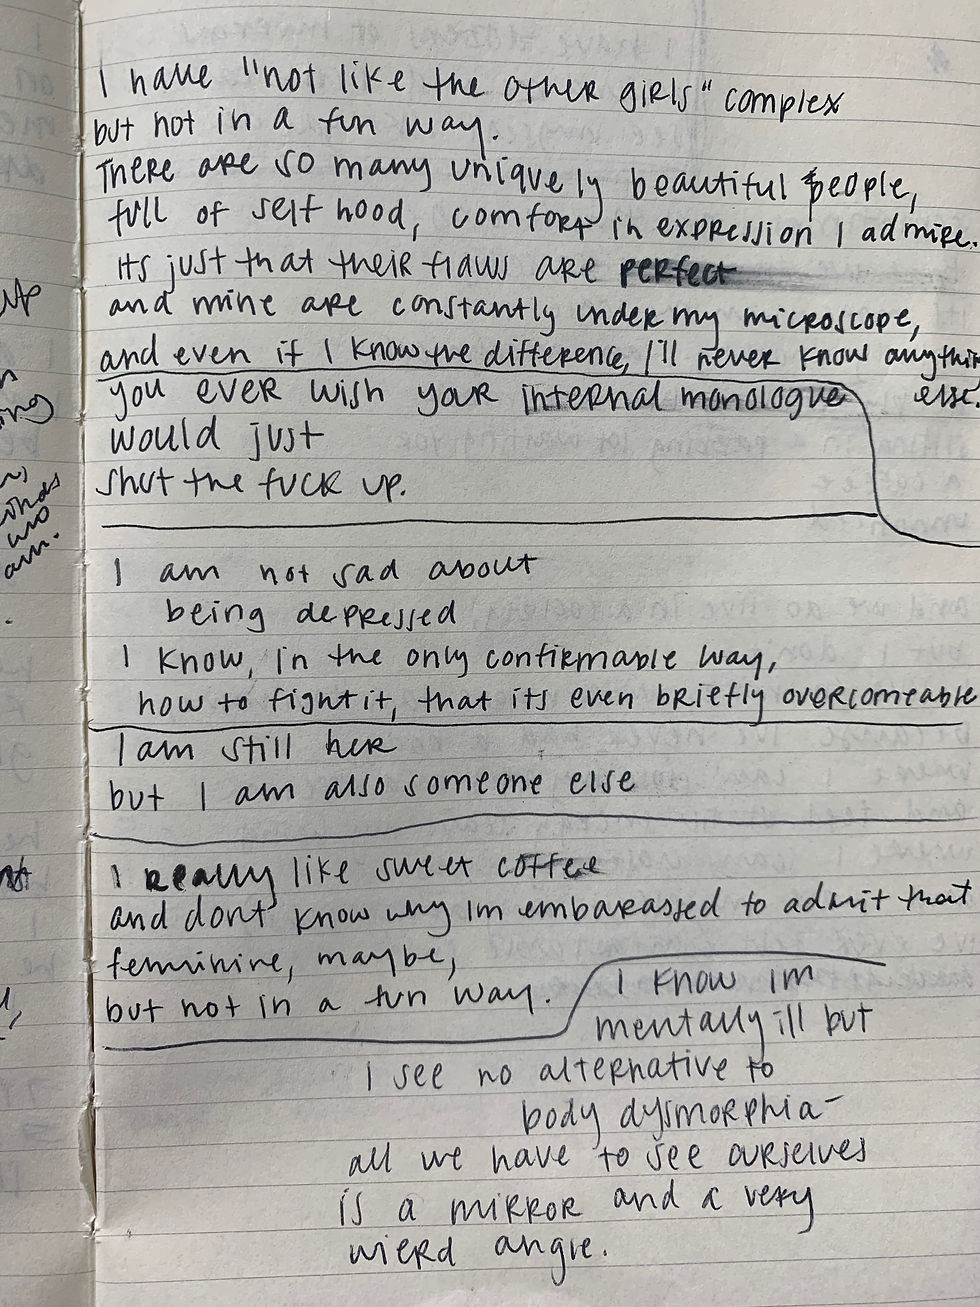 I have "not like the other girls" complex
but not in a fun way.
There are so many uniquely beautiful people,
full of self hood, comfort in expression I admire.
its just that their flaws are perfect
and mine are constantly under my microscope,
and even if I know the difference, I'll never know anything
else.
you ever wish your internal monologue
would just
shut the fuck up.
I am not sad about
being depressed
I know, in the only confirmable way,
how to fight it, that its even briefly overcomeable
I am still her
but I am also someone else
I really like sweet coffee
and dont know why Im embarassed to admit that
feminine, maybe,
but not in a fun way.
I know im
mentally ill but
I see no alternative to
body dysmorphia-
all we have to see ourselves
is a mirror and a very
wierd angle.
up
am.